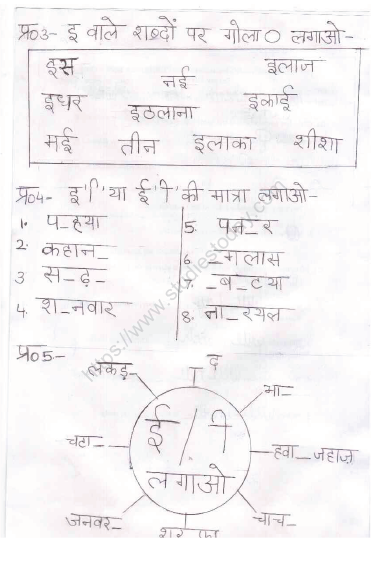 प्र०3- इ वाले शब्दों पर गोला O लगाओ-
इस नई इलाज
इधर इठलाना इकाई
मई तीन इलाका शीशा
प्र०4- इ 'ि' या ई 'ी' की मात्रा लगाओ-
1. प_हया 5. पन_र
2. कहान_ 6. _गलास
3 स_ढ़_ 7. _ब_टया
4. श_नवार 8. ना_रयल
प्र०5:-
लकड़_ _द
भा_
चटा_ ई / ी हवा_जहाज़
लगाओ
जनवर_ चाच_
https://www.studiestoday.com